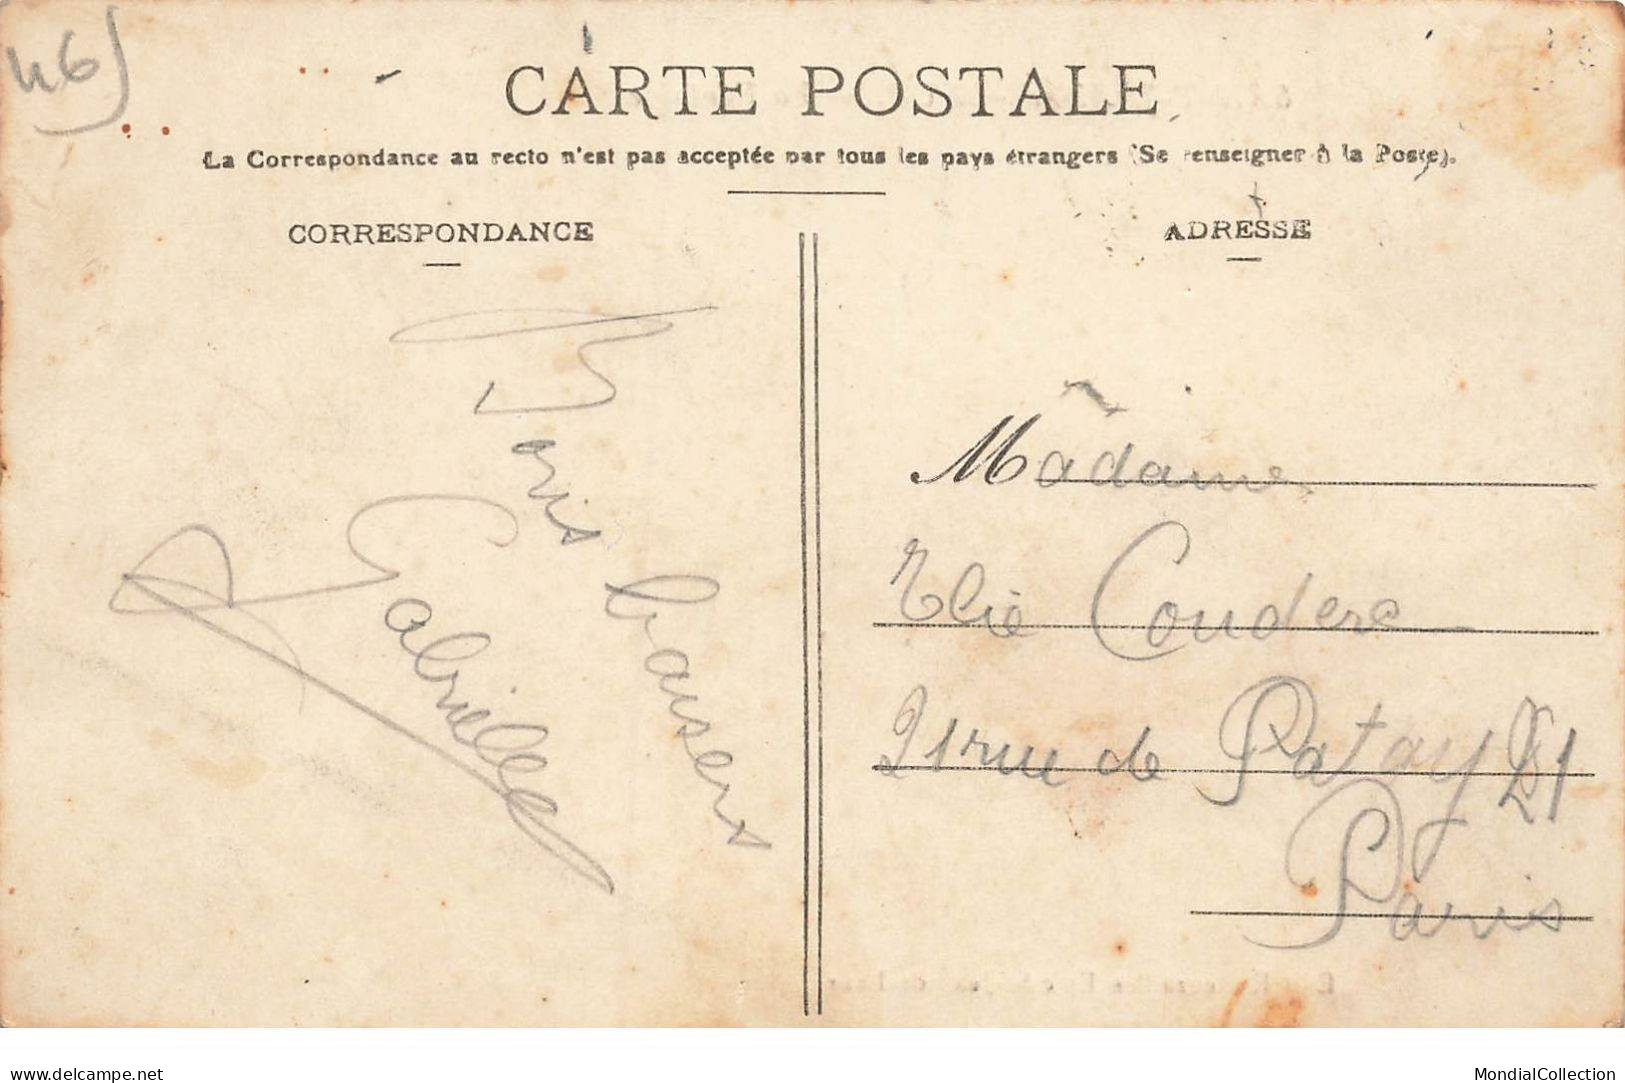 46
CARTE POSTALE
La Correspondance au recto n'est pas acceptée par tous les pays étrangers (Se renseigner à la Poste).
CORRESPONDANCE
ADRESSE
baisers
Gabrielle
Madame
Elie Couderc
21 rue de Patay 21
Paris
delcampe.net
MondialCollection